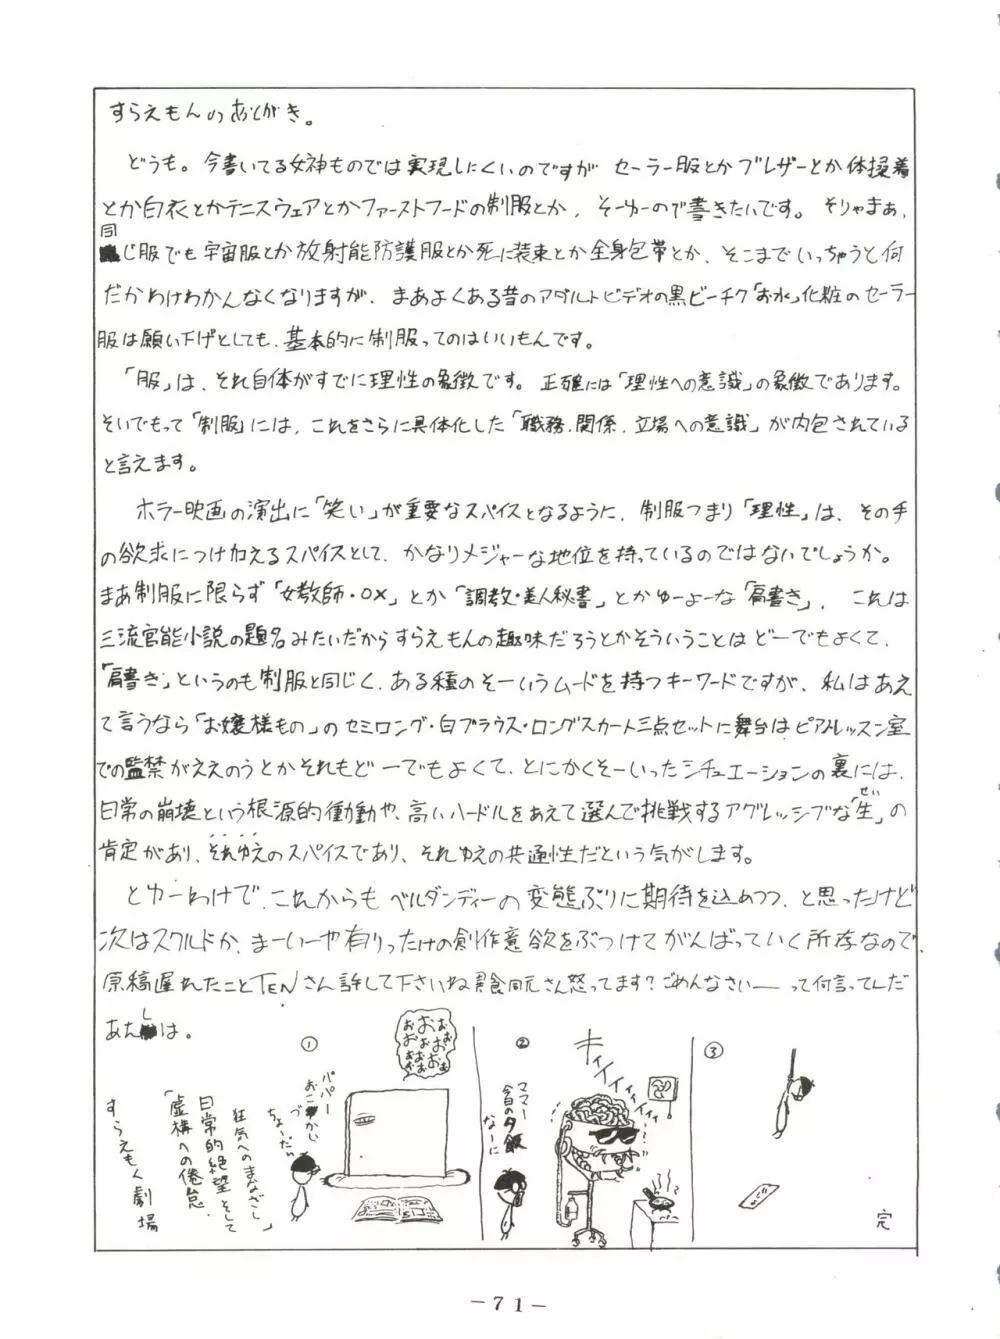 すらえもんのあとがき。
どうも。今書いてる女神ものでは実現しにくいのですが セーラー服とかブレザーとか体操着
とか白衣とかテニスウェアとかファーストフードの制服とか、そーゆーので書きたいです。そりゃまぁ、
同じ服でも宇宙服とか放射能防護服とか死に装束とか全身包帯とか、そこまでいっちゃうと何
だかわけわかんなくなりますが、まあよくある昔のアダルトビデオの黒ビーチク「お水」化粧のセーラー
服は願い下げとしても、基本的に制服ってのはいいもんです。
「服」は、それ自体がすでに理性の象徴です。正確には「理性への意識」の象徴であります。
そいでもって「制服」には、これをさらに具体化した「職務、関係、立場への意識」が内包されている
と言えます。
ホラー映画の演出に「笑い」が重要なスパイスとなるように、制服つまり「理性」は、その手
の欲求につけ加えるスパイスとして、かなりメジャーな地位を持っているのではないでしょうか。
まあ制服に限らず「女教師・○×」とか「調教・美人秘書」とかゆーよーな「肩書き」、これは
三流官能小説の題名みたいだからすらえもんの趣味だろうとかそういうことはどーでもよくて、
「肩書き」というのも制服と同じく、ある種のそーいうムードを持つキーワードですが、私はあえ
て言うなら「お嬢様もの」のセミロング・白ブラウス・ロングスカート三点セットに舞台はピアノレッスン室
での監禁がええのうとかそれもどーでもよくて、とにかくそーいったシチュエーションの裏には、
日常の崩壊という根源的衝動や、高いハードルをあえて選んで挑戦するアグレッシブな「生」の
せい
肯定があり、それゆえのスパイスであり、それゆえの共通性だという気がします。
とゆーわけで、これからもベルダンディーの変態ぶりに期待を込めつつ、と思ったけど
次はスクルドか、まーいーや有りったけの創作意欲をぶつけてがんばっていく所存なので、
原稿遅れたことTENさん許して下さいね 同元さん怒ってます?ごめんなさいーって何言ってんだ
あたしは。
①
おおおおおおおおおおおおおお
パパー
おこづかい
ちょーだい
②
キィイイイイイイイイ
ママー
今日の夕飯
なーに
③
完
狂気へのまなざし
日常的絶望そして
「虚構への倦怠」
すらえもん劇場
-71-